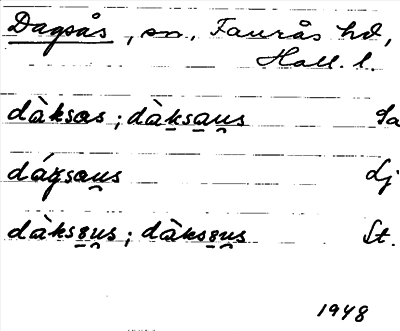 Dagsås, sn, Faurås hd,
Hall. l.
dàksas; dàksau̯s
dágsau̯s Lj
dàks8u̯s; dàks8u̯s St.
1948